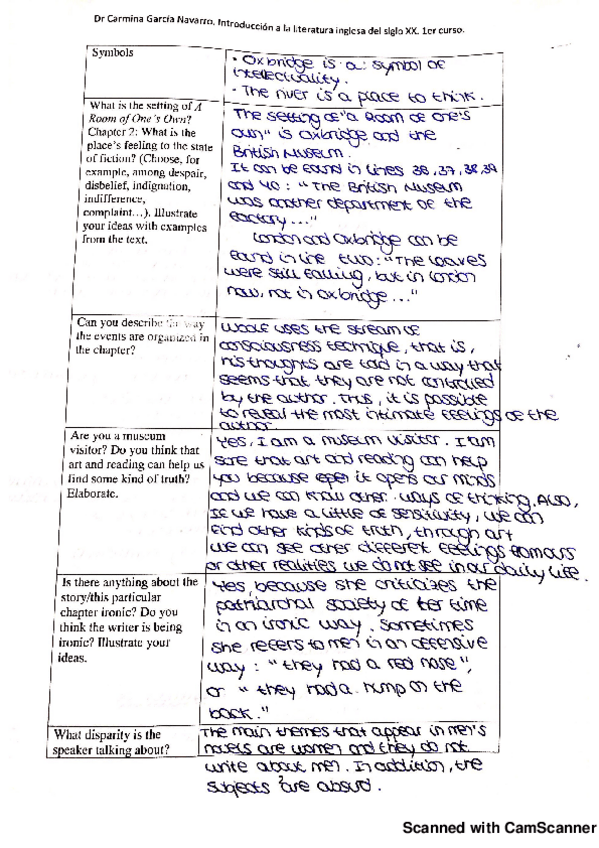 Dr Carmina García Navarro. Introducción a la literatura inglesa del siglo XX. 1er curso.
Symbols
• Oxbridge is a symbol of
intelectuality.
• The river is a place to think.
What is the setting of A
Room of One's Own?
Chapter 2: What is the
place's feeling to the state
of fiction? (Choose, for
example, among despair,
disbelief, indignation,
indifference,
complaint...). Illustrate
your ideas with examples
from the text.
The setting of "a Room of one's
own" is Oxbridge and the
British Museum.
It can be found in lines 38, 37, 38, 39
and 40: "The British Museum
was another department of the
factory..."
London and Oxbridge can be
found in line two: "The leaves
were still falling, but in London
now, not in oxbridge..."
Can you describe the way
the events are organized in
the chapter?
Woolf uses the stream of
consciousness technique, that is,
his thoughts are told in a way that
seems that they are not controlled
by the author. Thus, it is possible
to reveal the most intimate feelings of the
author.
Are you a museum
visitor? Do you think that
art and reading can help us
find some kind of truth?
Elaborate.
Yes, I am a museum visitor. I am
sure that art and reading can help
you because it opens our minds
and we can know other ways of thinking. Also,
if we have a little of sensitivity, we can
find other kinds of truth, through art
we can see other different feelings
or other realities we do not see in our daily life.
Is there anything about the
story/this particular
chapter ironic? Do you
think the writer is being
ironic? Illustrate your
ideas.
Yes, because she criticizes the
patriarchal society of her time
in an ironic way. Sometimes
she refers to men in an offensive
way: "they had a red nose",
or "they had a hump on the
back."
What disparity is the
speaker talking about?
The main themes that appear in men's
novels are women and they do not
write about men. In addition, the
subjects are absurd.
Scanned with CamScanner